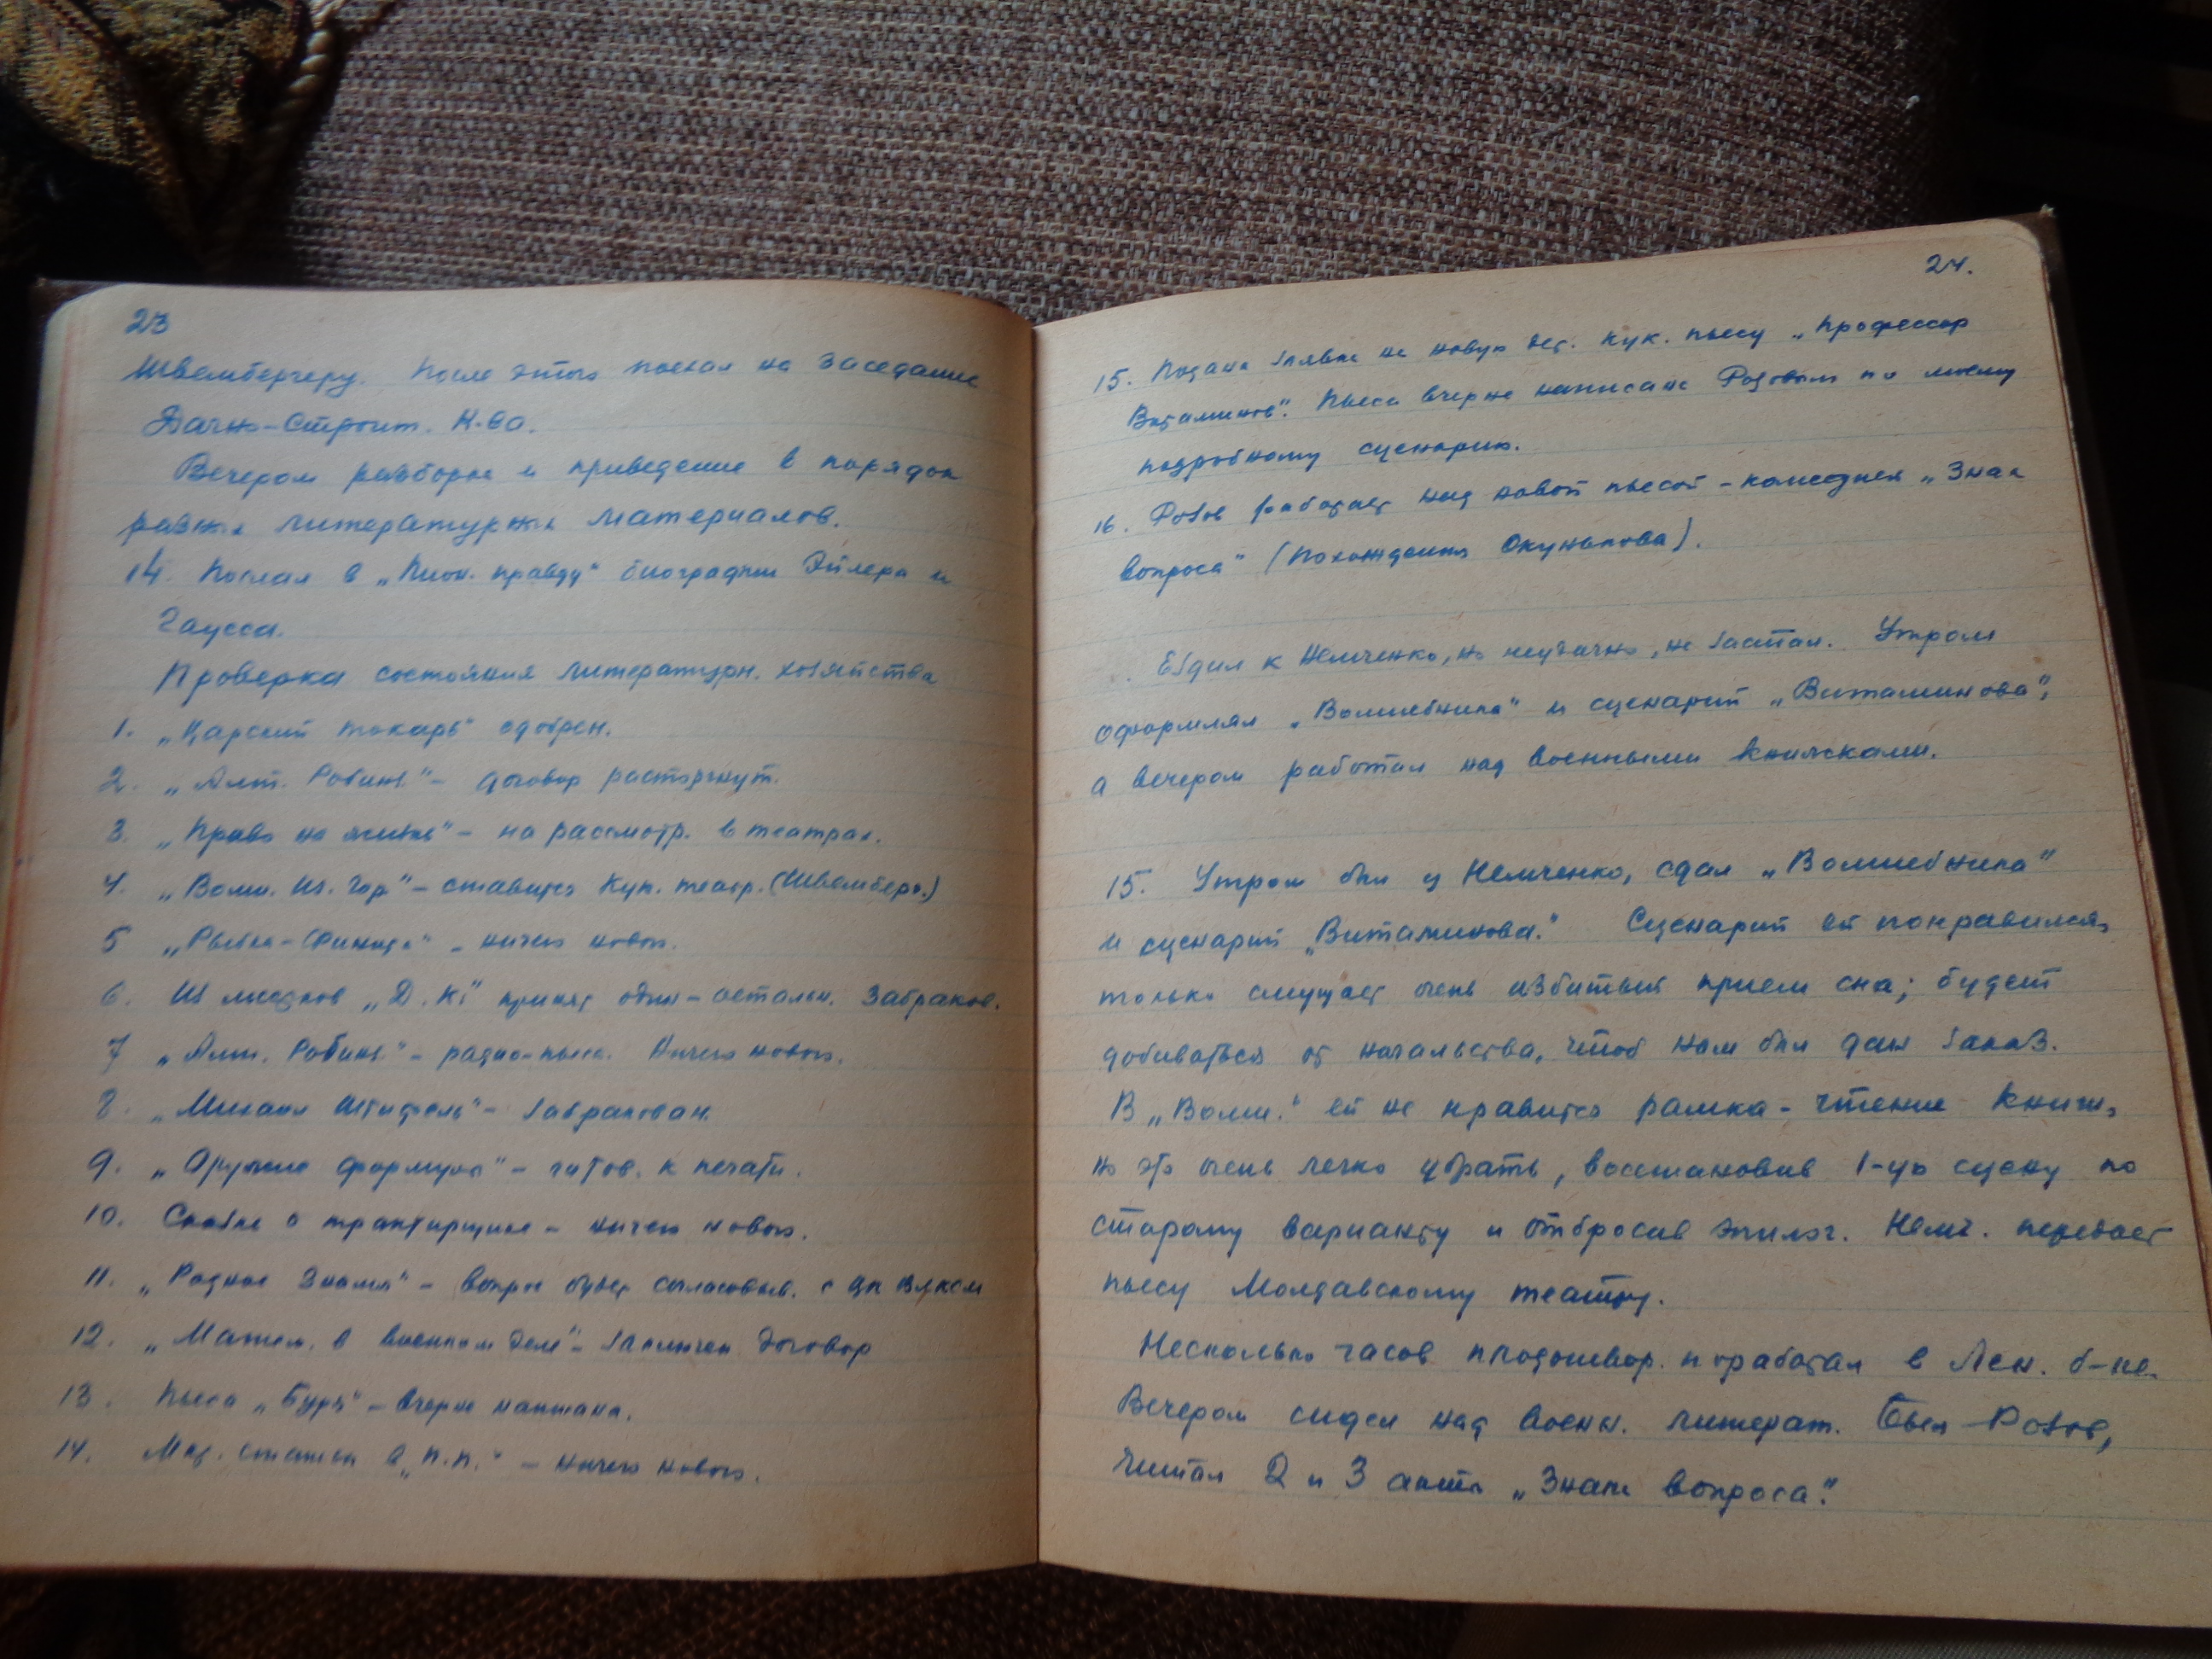 23
Швембергеру. После этого поехал на заседание
Дачно-Строит. К-во.
Вечером разборка и приведение в порядок
разных литературных материалов.
14. Послал в „Пион. правду" биографии Эйлера и
Гаусса.
Проверка состояния литературн. хозяйства
1. „Царский токарь" одобрен.
2. „Алт. Робинз." – договор расторгнут.
3. „Право на жизнь" – на рассмотр. в театрах.
4. „Волш. Из. Гор." – ставится Кук. театр. (Швемберг.)
5 „Рыбка-Финита" – ничего нового.
6. Из скетчей „Д. К." принят один – остальн. забраков.
7 „Алт. Робинз." – радио-пьеса. Ничего нового.
8. „Михаил Штифель" – забракован.
9. „Оружие формулы" – готов. к печати.
10. Сказка о трактирщике – ничего нового.
11. „Родное Знамя" – вопрос будет согласовыв. с ЦК ВЛКСМ
12. „Матем. в военном деле" – заключен договор
13. Пьеса „Буря" – вчерне написана.
14. Мат. статьи в „П.П." – ничего нового.
24.
15. Подана заявка на новую дет. кук. пьесу „Профессор
Витаминов". Пьеса вчерне написана Розовым по моему
подробному сценарию.
16. Розов работает над новой пьесой – комедией „Знак
вопроса" (Похождения Окунькова).
Ездил к Немченко, но неудачно, не застал. Утром
оформлял „Волшебника" и сценарий „Витаминова",
а вечером работал над военными книжками.
15. Утром был у Немченко, сдал „Волшебника"
и сценарий „Витаминова." Сценарий ей понравился,
только смущает очень избитый прием сна; будет
добиваться от начальства, чтоб нам был дан заказ.
В „Волш." ей не нравится рамка – чтение книж,
но это очень легко убрать, восстановив 1-ую сцену по
старому варианту и отбросив эпилог. Немч. передает
пьесу Молдавскому театру.
Несколько часов плодотвор. поработал в Лен. б-ке.
Вечером сидел над военн. литерат. Был Розов,
читал 2 и 3 акты „Знака вопроса."